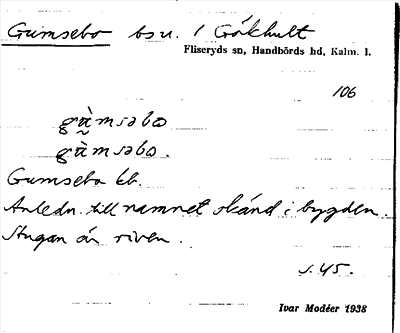 Gumsebo bs u. / Gökhult
Fliseryds sn, Handbörds hd, Kalm. l.
106
gàmsəbo
gàmsəbo.
Gumsebo kb.
Anledn. till namnet okänd i bygden.
Stugan är riven.
s. 45.
Ivar Modéer 1938